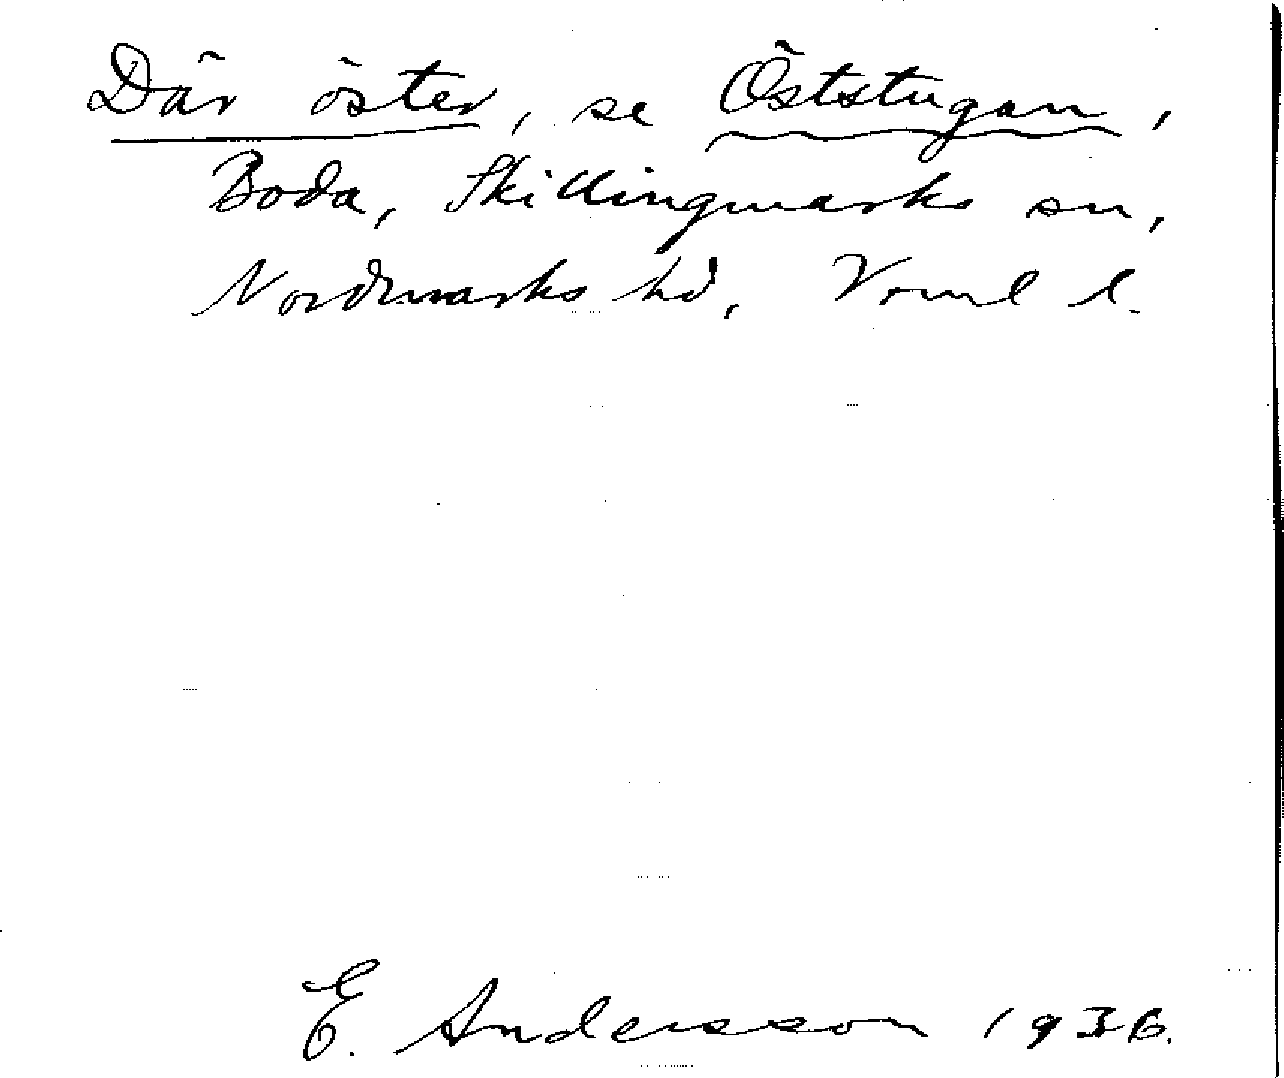 Där öster, se Öststugan,
Boda, Skillingmarks sn,
Nordmarks hd, Verml l.
E. Andersson 1936.